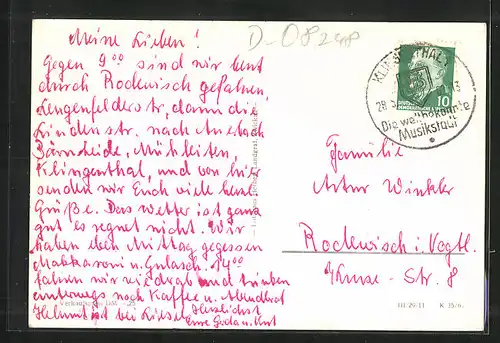 Meine Lieben!
D-08248
Gegen 9⁰⁰ sind wir heut
durch Rodewisch gefahren,
Lengenfelderstr, dann die
Lindenstr. nach Auerbach
Bärnheide, Mühlleiten,
Klingenthal, und von hier
senden wir Euch viele herzl.
Grüße. Das Wetter ist ganz
gut es regnet nicht. Wir
haben eben Mittag gegessen
Makkaroni u. Gulasch. 14⁰⁰
fahren wir wieder ab und trinken
unterwegs noch Kaffee u. Abendbrot
Helmut ist bei Liesel. Herzlichst
Eure Gerda u. Kurt
KLINGENTHAL
28.5
Die weltbekannte
Musikstadt
DEUTSCHE
DEMOKRATISCHE
10
Familie
Artur Winkler
Rodewisch i. Vogtl.
Kruse-Str. 8
III/29/11 K 15/6